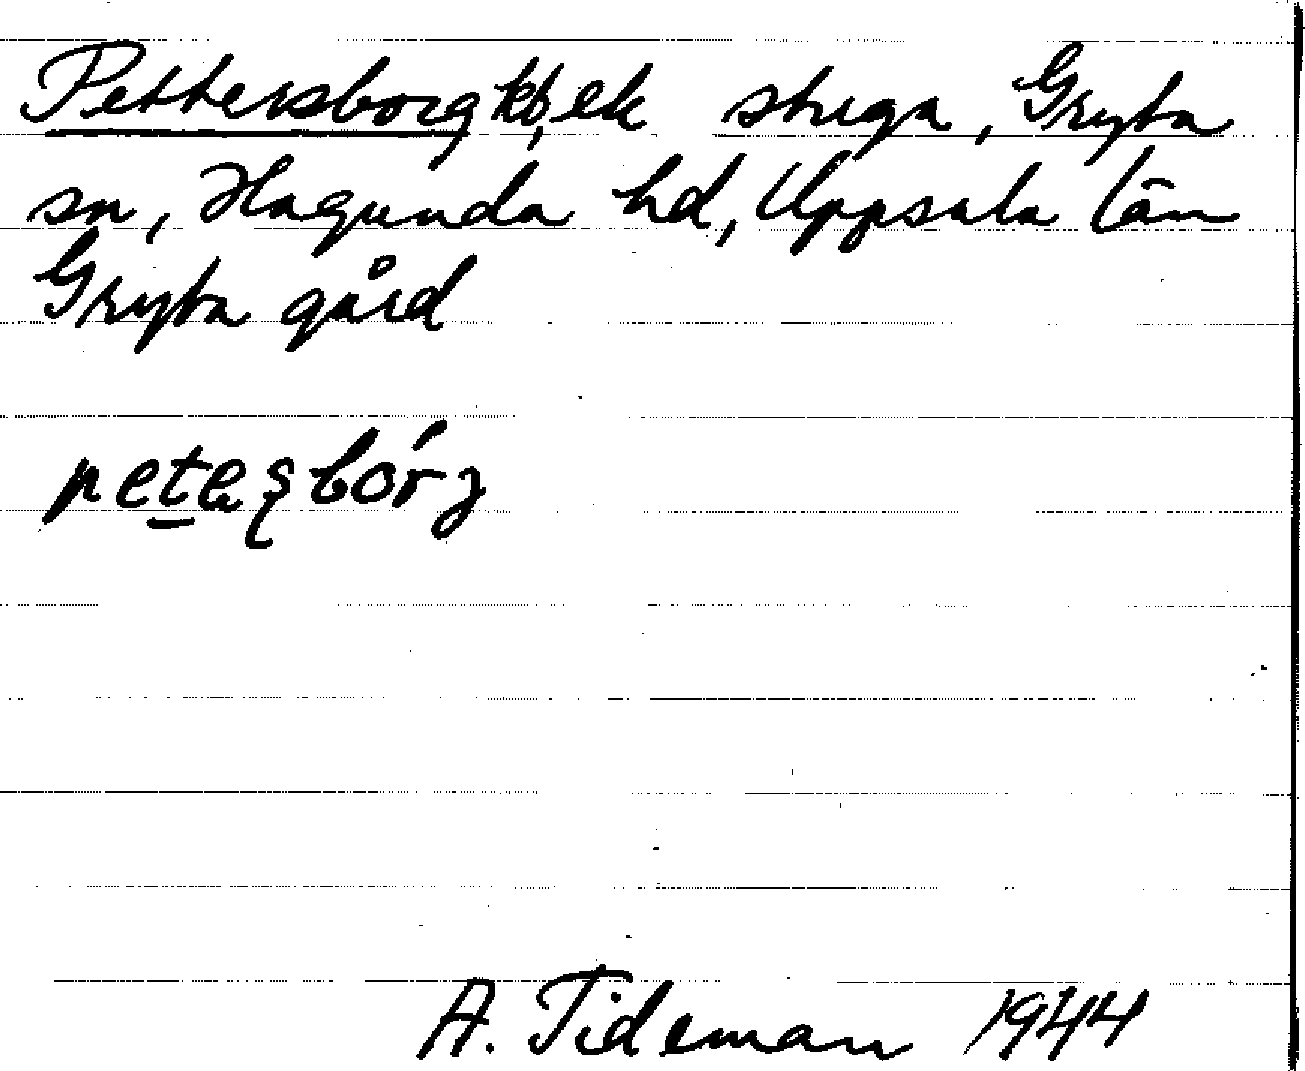 Pettersborg kb, ek stuga, Gryta
sn, Hagunda hd, Uppsala län
Gryta gård
A. Tideman 1944